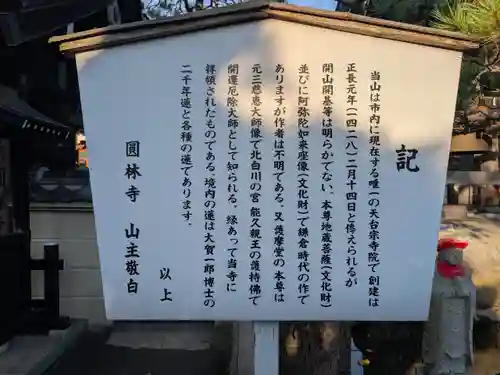 記
当山は市内に現在する唯一の天台宗寺院で創建は
正長元年(一四二八)二月十四日と傳えられるが
開山開基等は明らかでない、本尊地蔵菩薩(文化財)
並びに阿弥陀如来座像(文化財)で鎌倉時代の作で
ありますが作者は不明である。又護摩堂の本尊は
元三慈恵大師像で北白川の宮能久親王の護持佛で
開運厄除大師として知られる。縁あって当寺に
拝領されたものである。境内の蓮は大賀一郎博士の
二千年蓮と各種の蓮であります。
以上
圓林寺 山主敬白